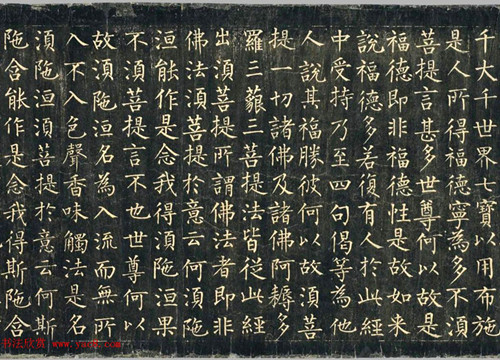 千大千世界七寶以用布施
是人所得福德寧為多不須
菩提言甚多世尊何以故是
福德即非福德性是故如來
說福德多若復有人於此經
中受持乃至四句偈等為他
人說其福勝彼何以故須菩
提一切諸佛及諸佛阿耨多
羅三藐三菩提法皆從此經
出須菩提所謂佛法者即非
佛法須菩提於意云何須陁
洹能作是念我得須陁洹果
不須菩提言不也世尊何以
故須陁洹名為入流而無所
入不入色聲香味觸法是名
須陁洹須菩提於意云何斯
陁含能作是念我得斯陁含
书法欣赏